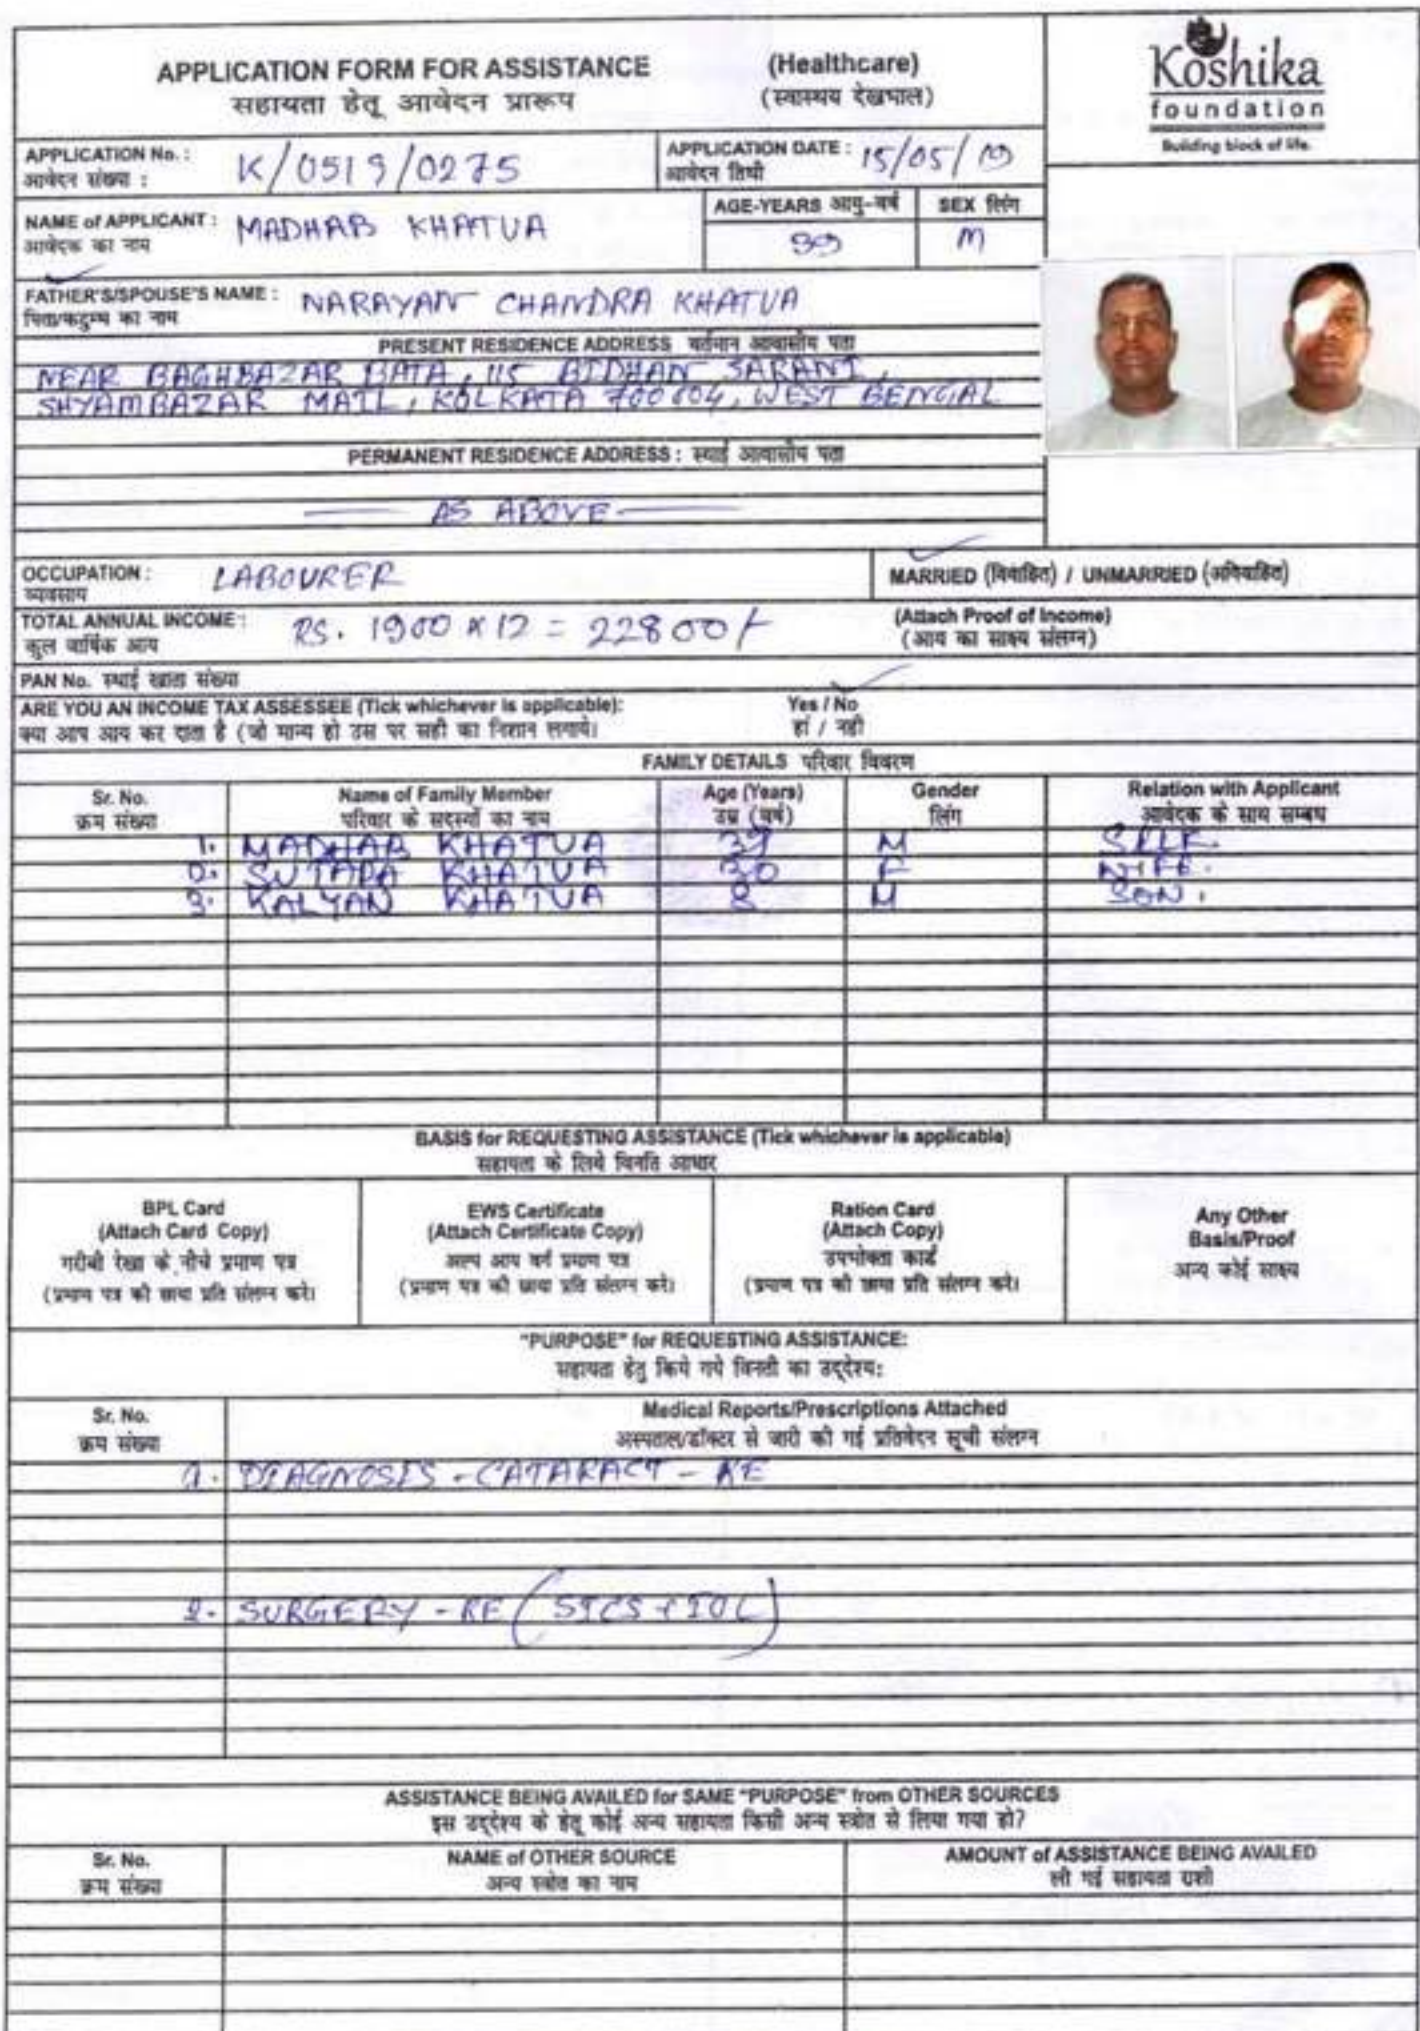 APPLICATION FORM FOR ASSISTANCE (Healthcare)
सहायता हेतू आवेदन प्रारूप (स्वास्थय देखभाल)
Koshika
foundation
Building block of life.
APPLICATION No. : K/0519/0275
आवेदन संख्या :
APPLICATION DATE : 15/05/19
आवेदन तिथी
NAME of APPLICANT : MADHAB KHATUA
आवेदक का नाम
AGE-YEARS आयु-वर्ष SEX लिंग
39 M
FATHER'S/SPOUSE'S NAME : NARAYAN CHANDRA KHATUA
पिता/कटुम्ब का नाम
PRESENT RESIDENCE ADDRESS वर्तमान आवासीय पता
NEAR BAGHBAZAR BATA, 115 BIDHAN SARANI,
SHYAMBAZAR MAIL, KOLKATA 700004, WEST BENGAL
PERMANENT RESIDENCE ADDRESS : स्थाई आवासीय पता
AS ABOVE
OCCUPATION : LABOURER
व्यवसाय
MARRIED (विवाहित) / UNMARRIED (अविवाहित)
TOTAL ANNUAL INCOME : RS. 1900 x 12 = 22800/-
कुल वार्षिक आय
(Attach Proof of Income)
(आय का साक्ष्य संलग्न)
PAN No. स्थाई खाता संख्या
ARE YOU AN INCOME TAX ASSESSEE (Tick whichever is applicable): Yes / No
क्या आप आय कर दाता है (जो मान्य हो उस पर सही का निशान लगाये। हां / नही
FAMILY DETAILS परिवार विवरण
Sr. No. Name of Family Member Age (Years) Gender Relation with Applicant
क्रम संख्या परिवार के सदस्यों का नाम उम्र (वर्ष) लिंग आवेदक के साथ सम्बध
1. MADHAB KHATUA 39 M SELF.
2. SUTAPA KHATUA 30 F WIFE.
3. KALYAN KHATUA 8 M SON.
BASIS for REQUESTING ASSISTANCE (Tick whichever is applicable)
सहायता के लिये विनति आधार
BPL Card
(Attach Card Copy)
गरीबी रेखा के नीचे प्रमाण पत्र
(प्रमाण पत्र की छाया प्रति संलग्न करे।
EWS Certificate
(Attach Certificate Copy)
अल्प आय वर्ग प्रमाण पत्र
(प्रमाण पत्र की छाया प्रति संलग्न करे।
Ration Card
(Attach Copy)
उपभोक्ता कार्ड
(प्रमाण पत्र की छाया प्रति संलग्न करे।
Any Other
Basis/Proof
अन्य कोई साक्ष्य
"PURPOSE" for REQUESTING ASSISTANCE:
सहायता हेतु किये गये विनती का उद्देश्य:
Sr. No. Medical Reports/Prescriptions Attached
क्रम संख्या अस्पताल/डॉक्टर से जारी की गई प्रतिवेदन सूची संलग्न
1. DIAGNOSIS - CATARACT - RE
2. SURGERY - RE (SICS + IOL)
ASSISTANCE BEING AVAILED for SAME "PURPOSE" from OTHER SOURCES
इस उद्देश्य के हेतू कोई अन्य सहायता किसी अन्य स्त्रोत से लिया गया हो?
Sr. No. NAME of OTHER SOURCE AMOUNT of ASSISTANCE BEING AVAILED
क्रम संख्या अन्य स्त्रोत का नाम ली गई सहायता राशी